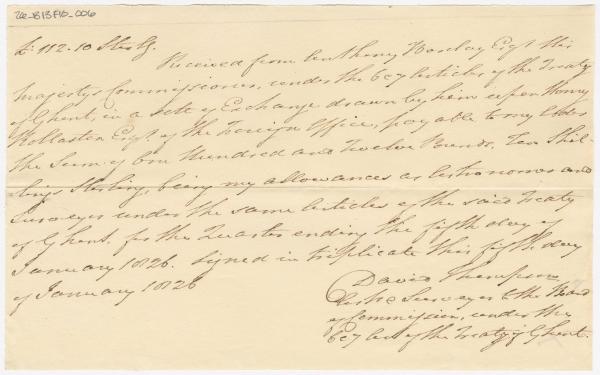 76-B13F10-006
£:112.10 Sterlg.
Received from Anthony Barclay Esqr His
Majestys Commissioner, under the 6 & 7 Articles of the Treaty
of Ghent, in a sett of Exchange drawn by him upon Henry
Rollaston Esqr. of the Foreign Office, payable to my Order
the Sum of One Hundred and Twelve Pounds, Ten Shil-
lings Sterling, being my allowances as Astronomer and
Surveyor under the same Articles of the said Treaty
of Ghent. for the Quarter ending the fifth day of
January 1826. Signed in triplicate this fifth day
of January 1826
David Thompson
Astr & Surveyor to the Board
of Commission, under the
6 & 7 Art of the Treaty of Ghent.